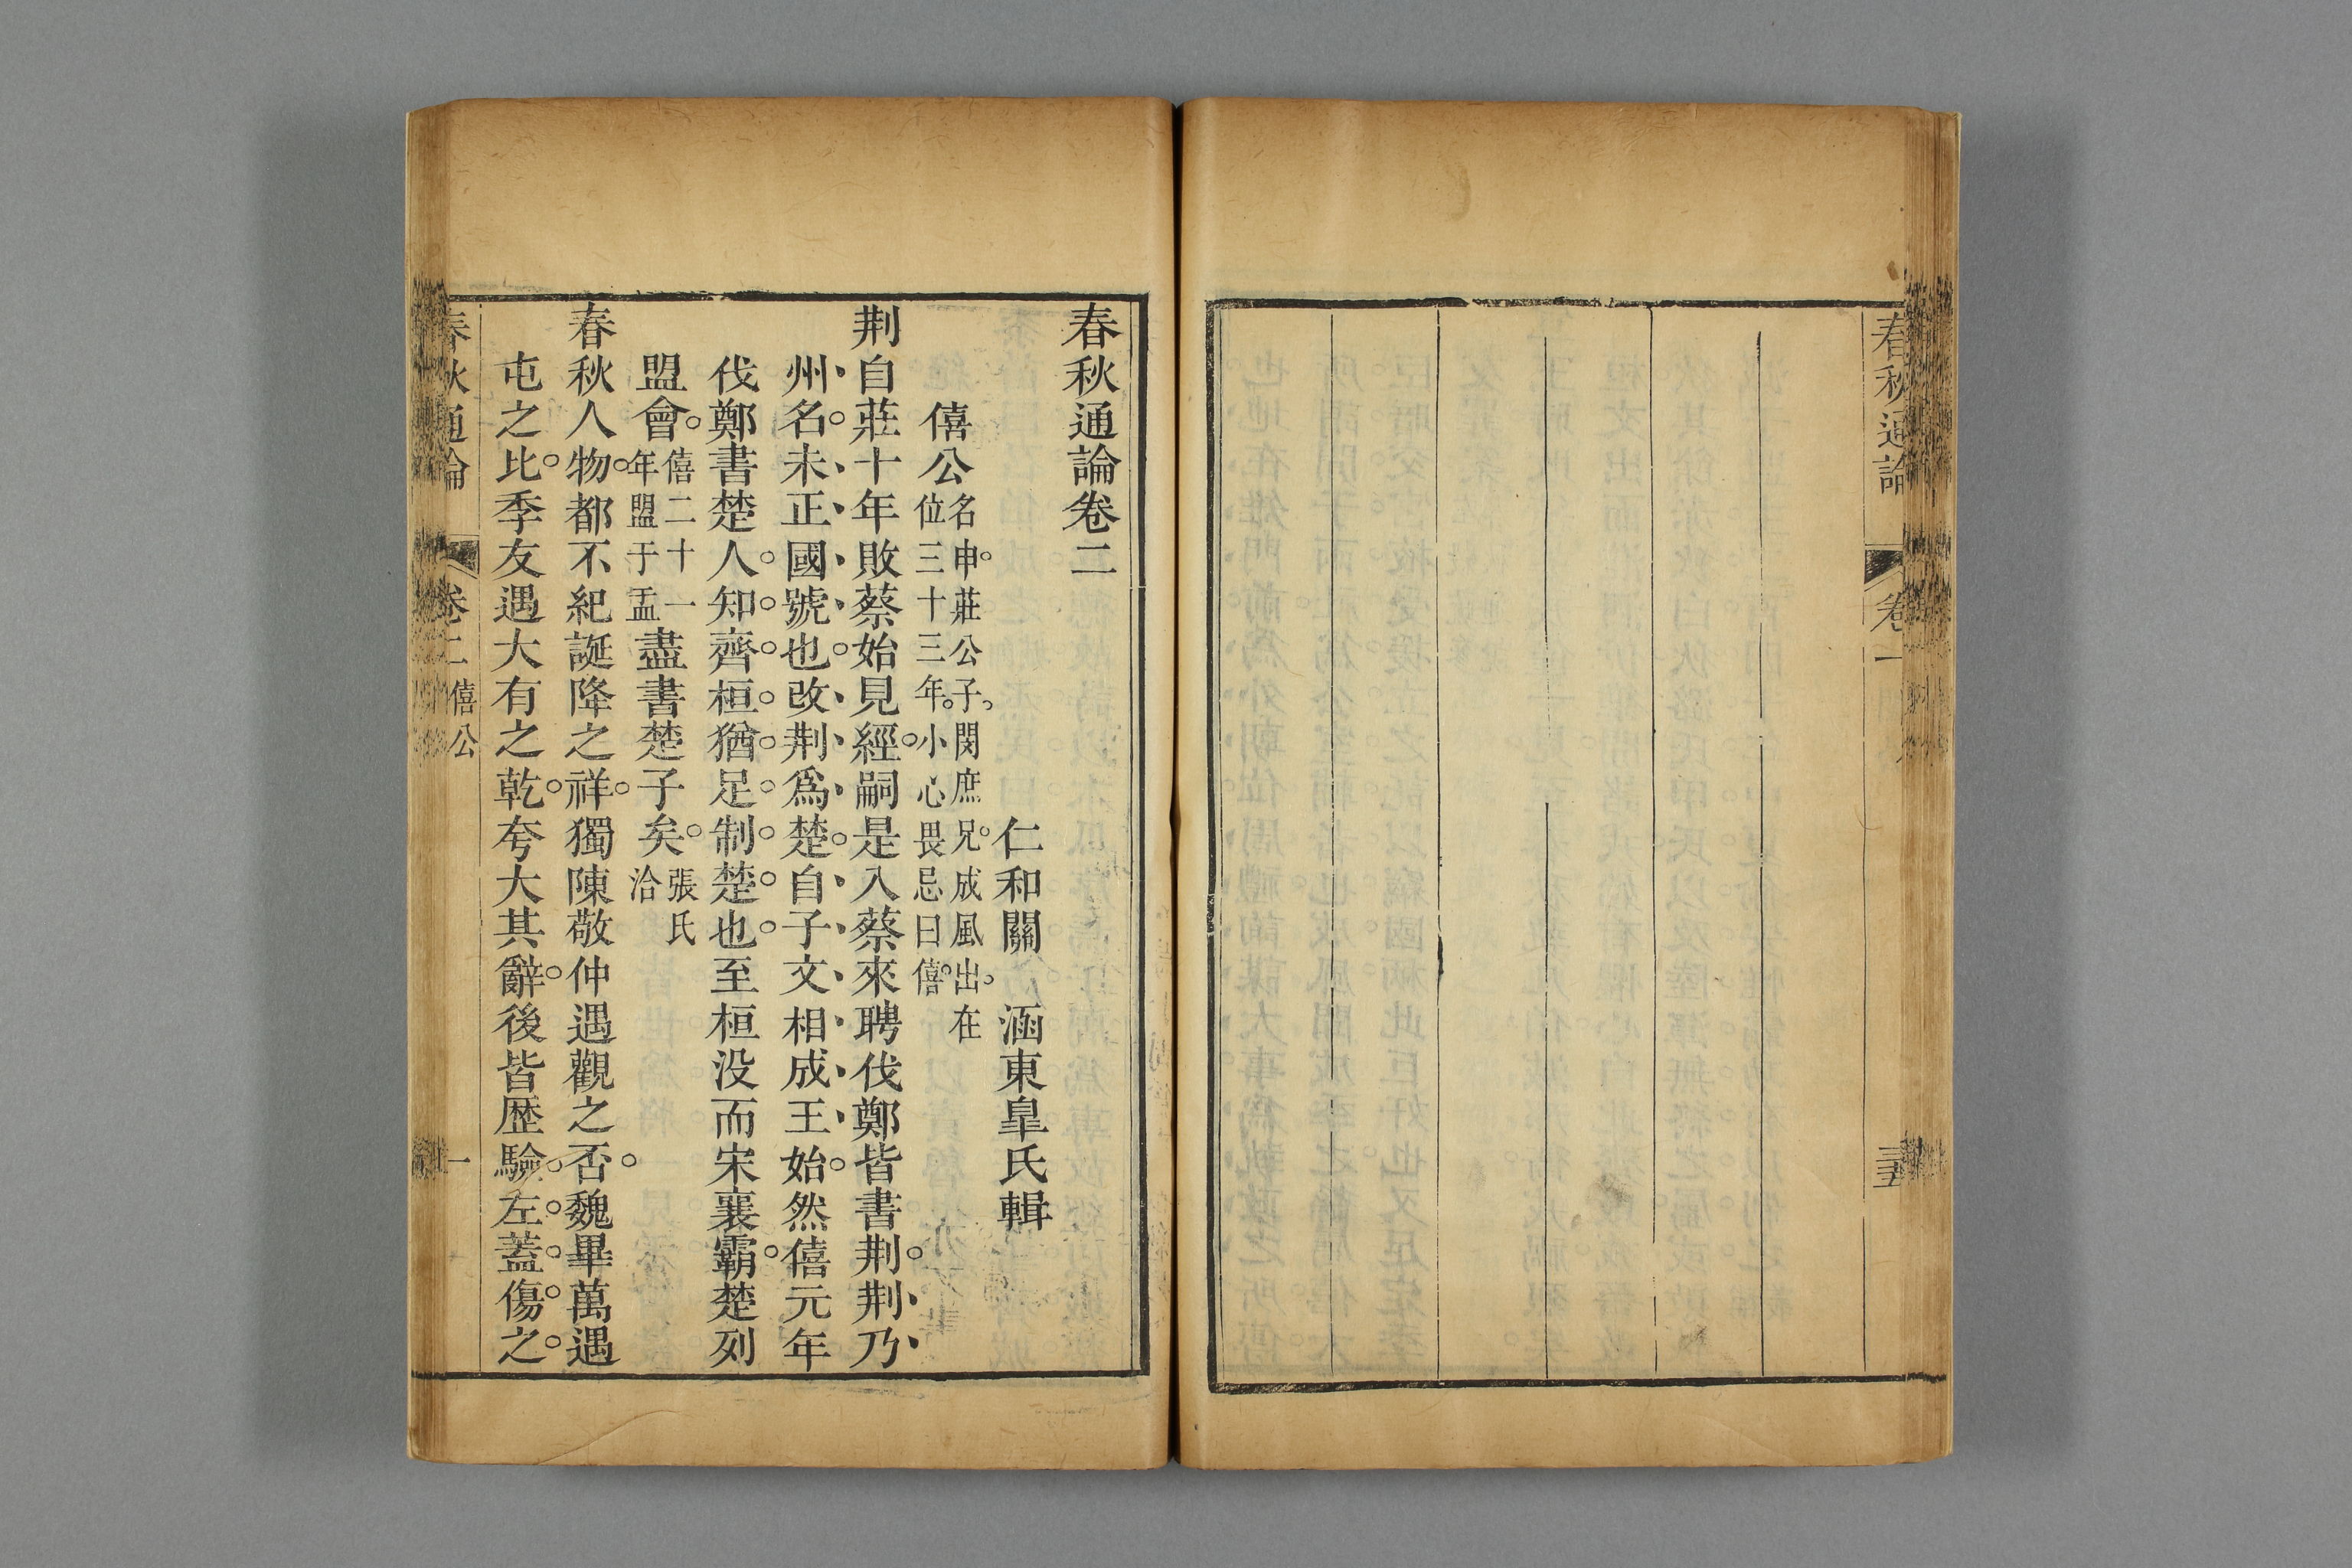 春秋通論
卷一
三五
春秋通論卷二
仁和關 涵東臯氏輯
僖公名申莊公子閔庶兄成風出在
位三十三年小心畏忌曰僖
荆自莊十年敗蔡始見經嗣是入蔡來聘伐鄭皆書荆荆乃
州名未正國號也改荆爲楚自子文相成王始然僖元年
伐鄭書楚人知齊桓猶足制楚也至桓没而宋襄霸楚列
盟會僖二十一
年盟于盂盡書楚子矣張氏
洽
春秋人物都不紀誕降之祥獨陳敬仲遇觀之否魏畢萬遇
屯之比季友遇大有之乾夸大其辭後皆歴驗左蓋傷之
春秋通論
卷二
僖公
一